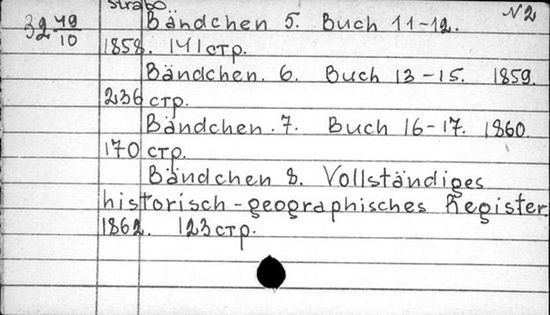 Strabo. № 2
32 49/10 Bändchen 5. Buch 11-12.
1858. 141 стр.
Bändchen. 6. Buch 13-15. 1859.
236 стр.
Bändchen. 7. Buch 16-17. 1860.
170 стр.
Bändchen 8. Vollständiges
historisch-geographisches Register
1862. 123 стр.